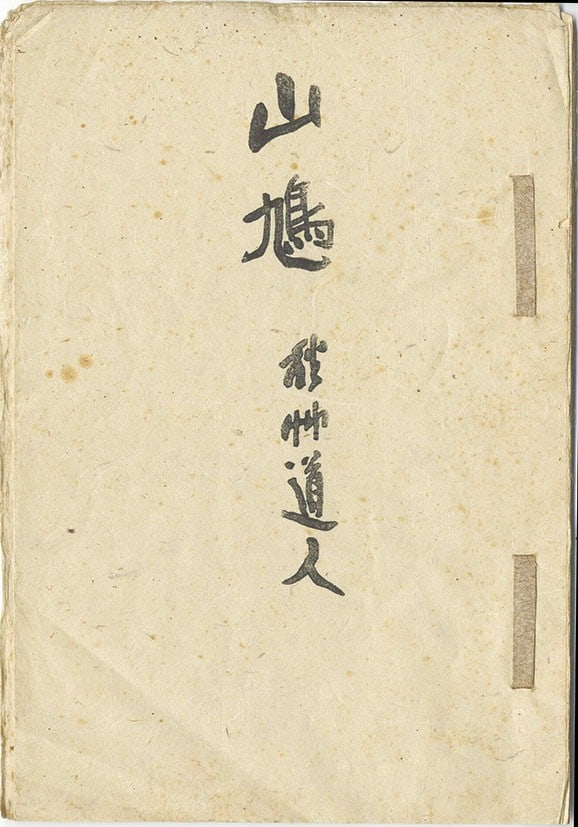 山鳩 秋艸道人